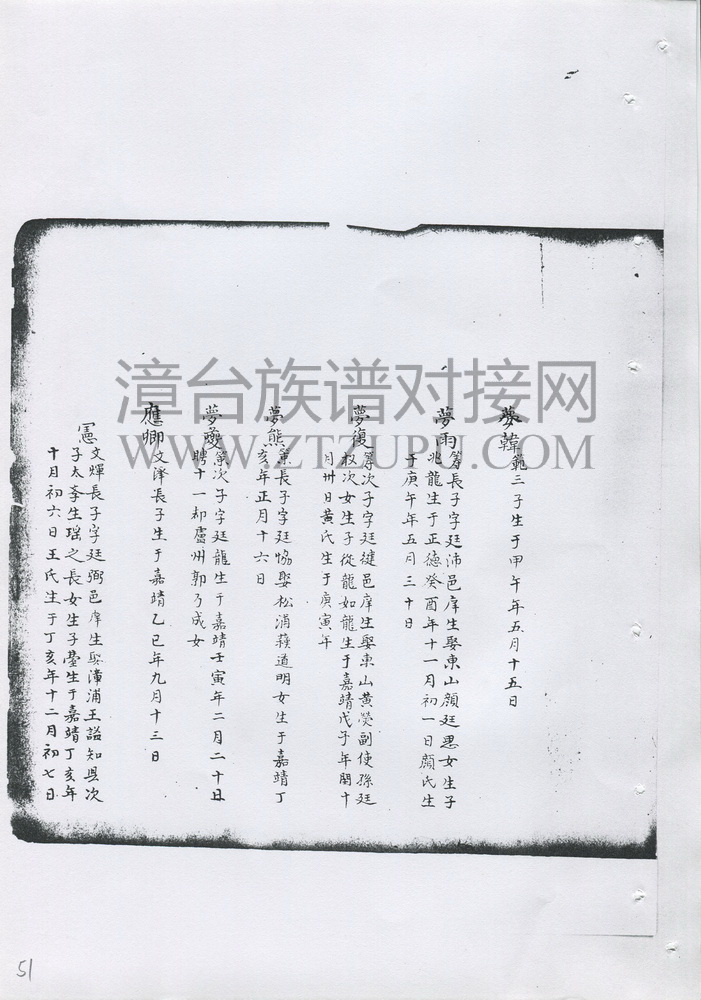 夢韓 範三子生于甲午年五月十五日
夢雨 籌長子字廷沛邑庠生娶東山顏廷悪女生子
兆龍生于正德癸酉年十一月初一日顏氏生
于庚午年五月三十日
夢復 籌次子字廷健邑庠生娶東山黃熒副使孫廷
权次女生子從龍如龍生于嘉靖戊子年閏十
月卅日黃氏生于庚寅年
夢熊 長子字廷恊娶松浦蘓道明女生于嘉靖丁
亥年正月十六日
夢夔 次子字廷龍生于嘉靖壬寅年二月二十日
聘十一都盧州郭乃成女
應卿 文澤長子生于嘉靖乙巳年九月十三日
憲 文煇長子字廷弼邑庠生娶漳浦王謚知县次
子太李生瑶之長女生子臺生于嘉靖丁亥年
十月初六日王氏生于丁亥年十二月初七日
漳台族谱对接网
WWW.ZTZUPU.COM
51